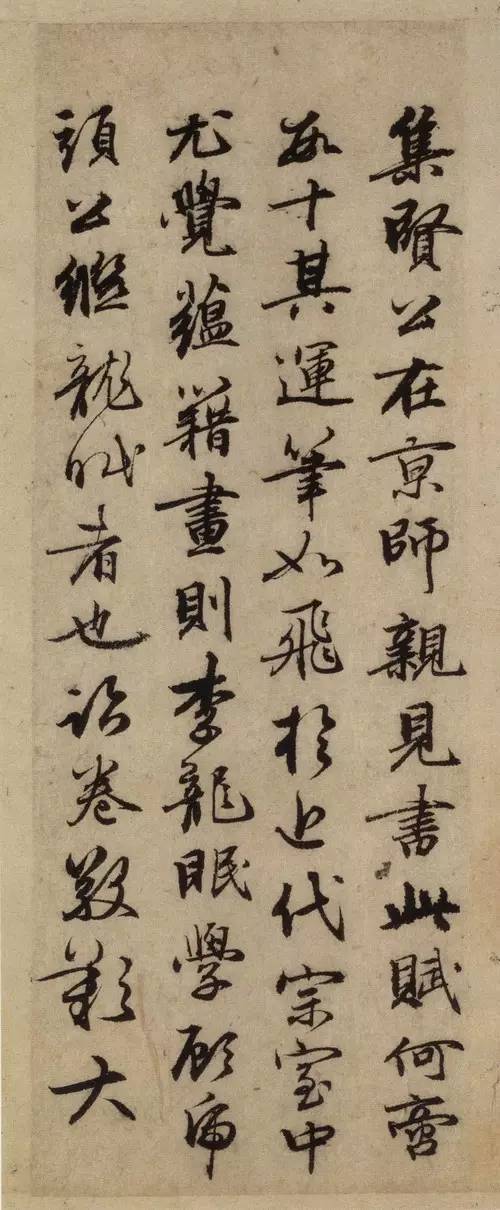 集賢公在京師親見書此賦何啻
數十其運筆如飛於近代宗室中
尤覺蘊藉畫則李龍眠學顧虎
頭公繼龍眠者也卷敬歎大